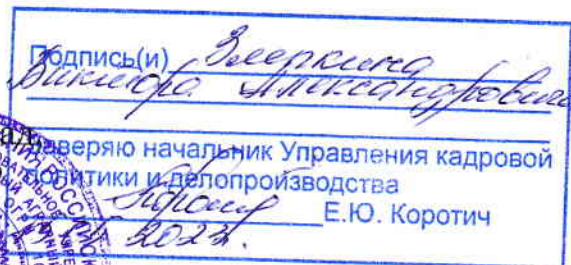 Подпись(и) Злепкина
Виктора Александровича
заверяю начальник Управления кадровой
политики и делопроизводства
Е.Ю. Коротич
2022.